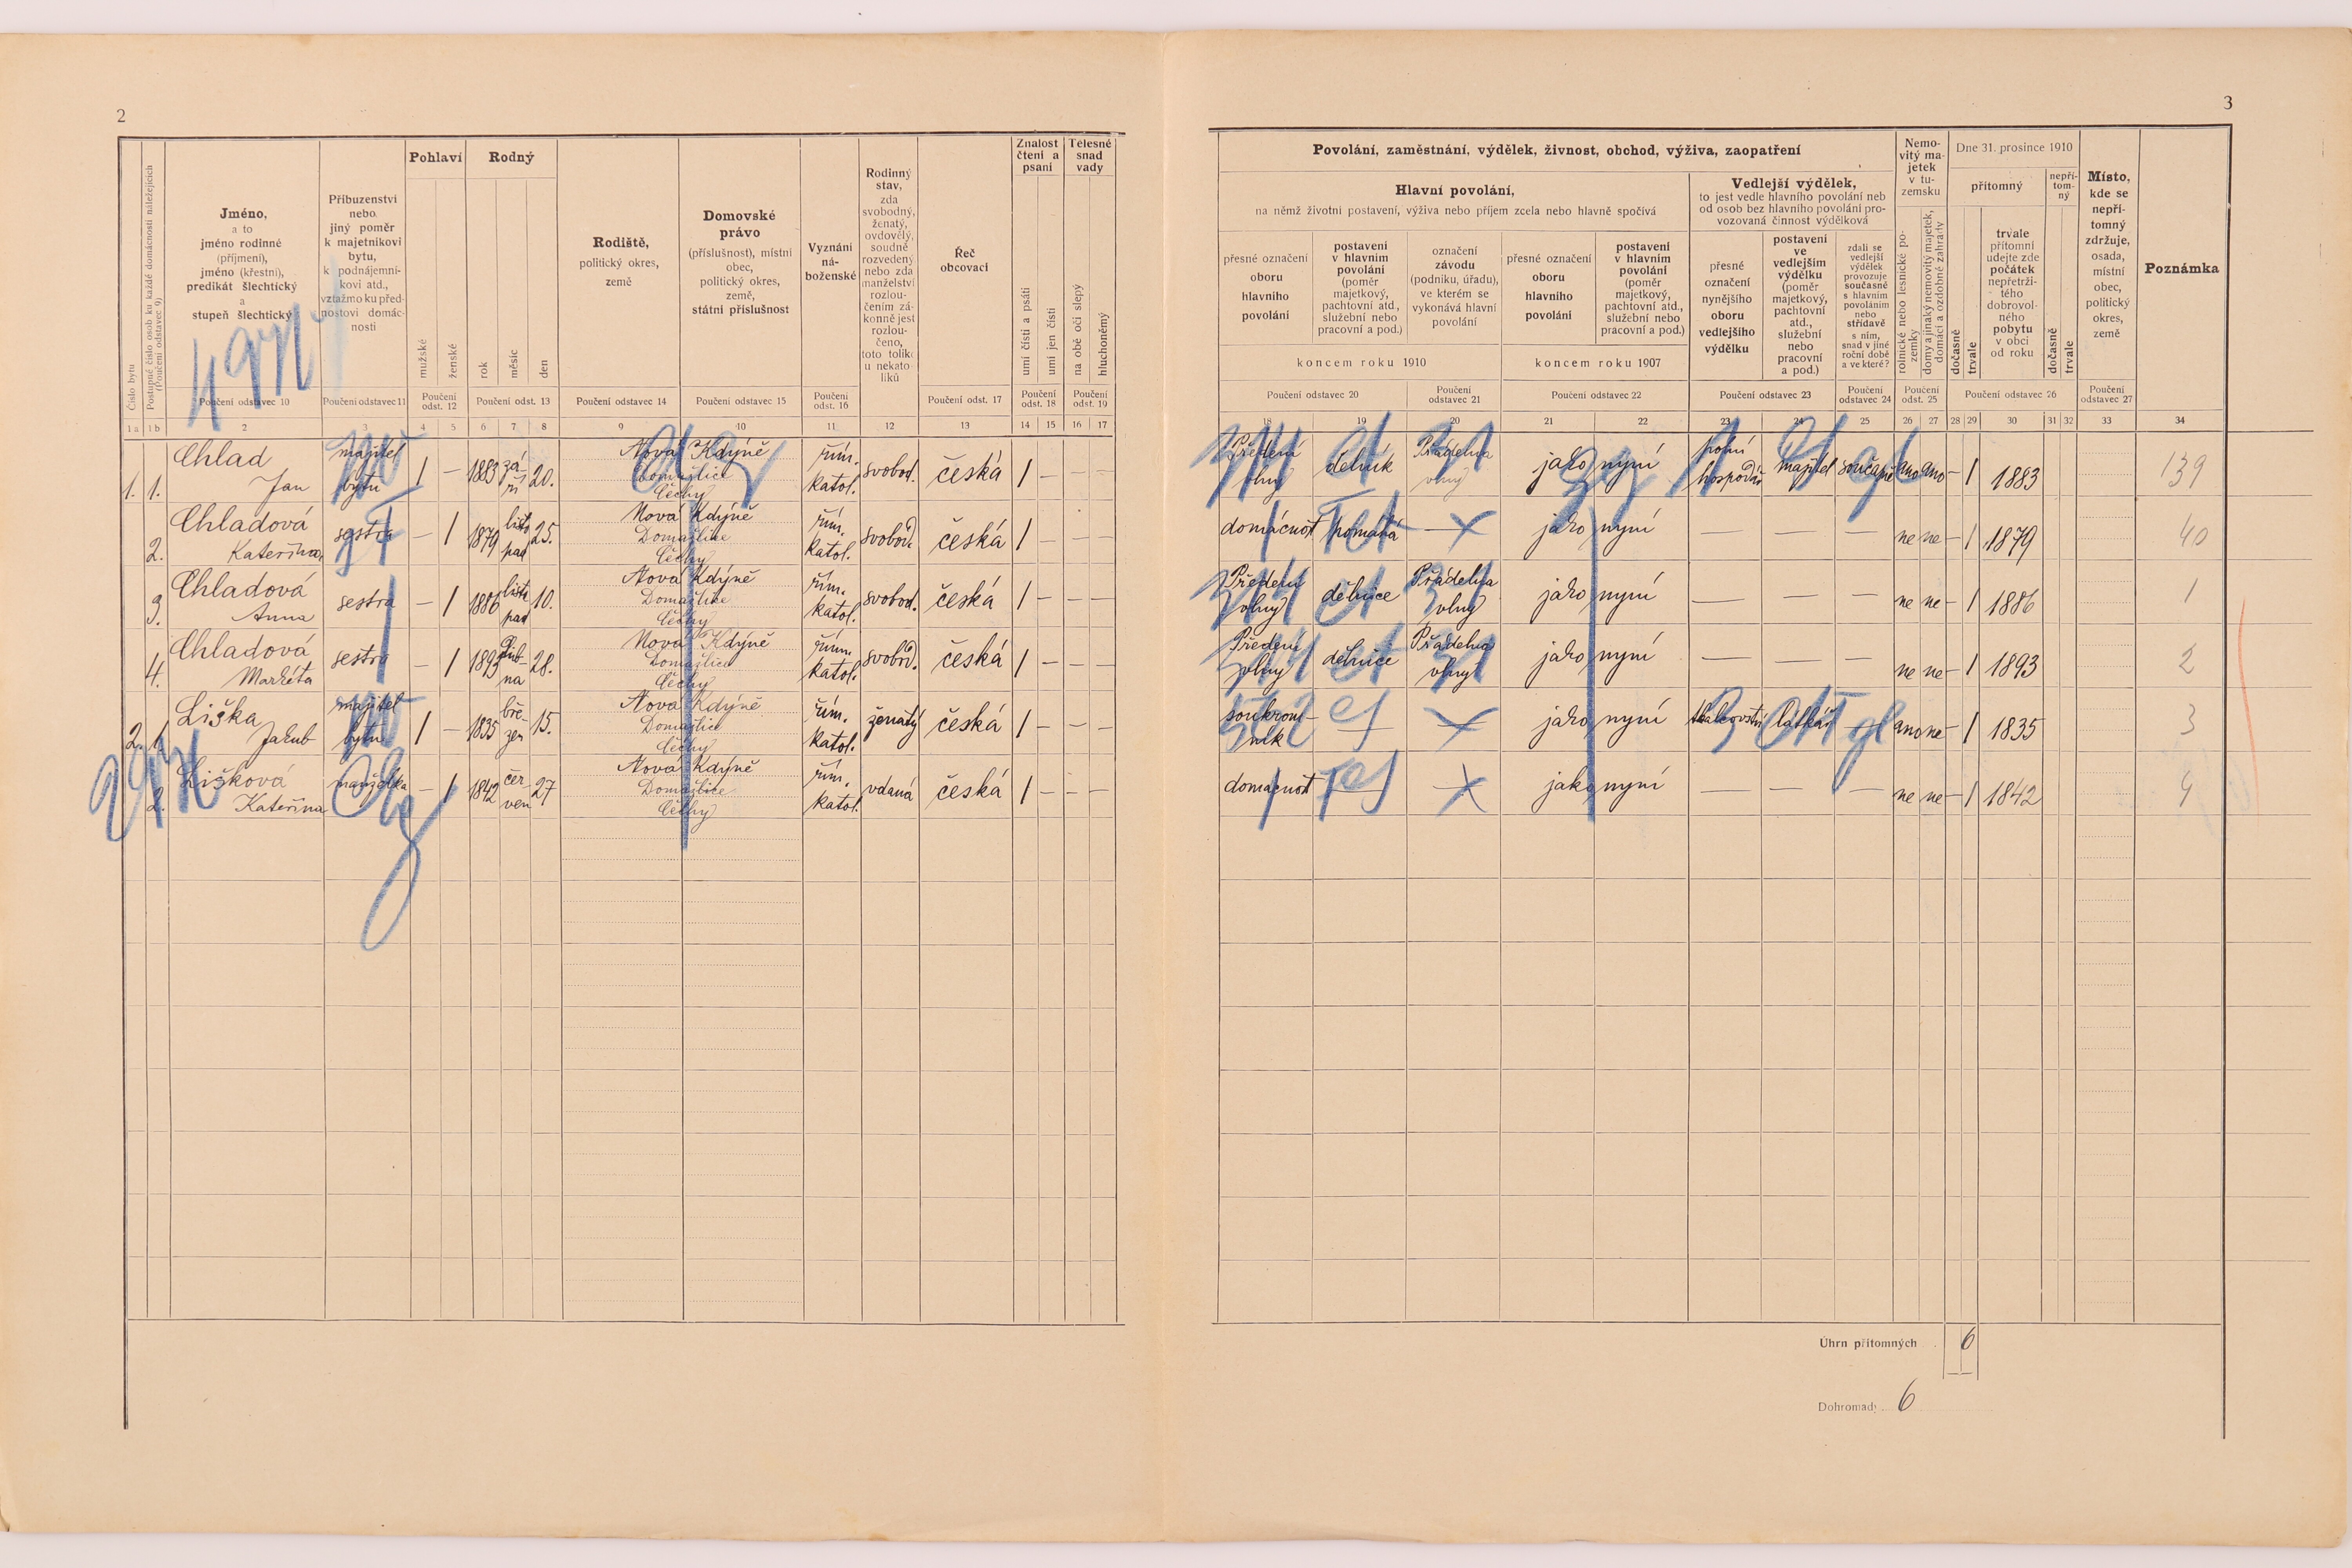 2
3
Číslo bytu
Postupné číslo osob ku každé domácnosti náležejících
(Poučení odstavec 9)
Jméno,
a to
jméno rodinné
(příjmení),
jméno (křestní),
predikát šlechtický
a
stupeň šlechtický
Poučení odstavec 10
Příbuzenství
nebo
jiný poměr
k majetníkovi
bytu,
k podnájemní-
kovi atd.,
vztažmo ku před-
nostovi domác-
nosti
Poučení odstavec 11
Pohlaví
mužské
ženské
Poučení
odst. 12
Rodný
rok
měsíc
den
Poučení odst. 13
Rodiště,
politický okres,
země
Poučení odstavec 14
Domovské
právo
(příslušnost), místní
obec,
politický okres,
země,
státní příslušnost
Poučení odstavec 15
Vyznání
ná-
boženské
Poučení
odst. 16
Rodinný
stav,
zda
svobodný,
ženatý,
ovdovělý,
soudně
rozvedený
nebo zda
manželství
rozlou-
čením zá-
konně jest
rozlou-
čeno,
toto toliko
u nekato-
líků
Řeč
obcovací
Poučení odst. 17
Znalost
čtení a
psaní
umí čísti a psáti
umí jen čísti
Poučení
odst. 18
Tělesné
snad
vady
na obě oči slepý
hluchoněmý
Poučení
odst. 19
Povolání, zaměstnání, výdělek, živnost, obchod, výživa, zaopatření
Hlavní povolání,
na němž životní postavení, výživa nebo příjem zcela nebo hlavně spočívá
přesné označení
oboru
hlavního
povolání
postavení
v hlavním
povolání
(poměr
majetkový,
pachtovní atd.,
služební nebo
pracovní a pod.)
označení
závodu
(podniku, úřadu),
ve kterém se
vykonává hlavní
povolání
přesné označení
oboru
hlavního
povolání
postavení
v hlavním
povolání
(poměr
majetkový,
pachtovní atd.,
služební nebo
pracovní a pod.)
koncem roku 1910
koncem roku 1907
Poučení odstavec 20
Poučení
odstavec 21
Poučení odstavec 22
Vedlejší výdělek,
to jest vedle hlavního povolání neb
od osob bez hlavního povolání pro-
vozovaná činnost výdělková
přesné
označení
nynějšího
oboru
vedlejšího
výdělku
postavení
ve
vedlejším
výdělku
(poměr
majetkový,
pachtovní
atd.,
služební
nebo
pracovní
a pod.)
zdali se
vedlejší
výdělek
provozuje
současně
s hlavním
povoláním
nebo
střídavě
s ním,
snad v jiné
roční době
a ve které?
Poučení odstavec 23
Poučení
odstavec 24
Nemo-
vitý ma-
jetek
v tu-
zemsku
rolnické nebo lesnické po-
zemky
domy a jinaký nemovitý majetek,
domácí a ozdobné zahrady
Poučení
odst. 25
Dne 31. prosince 1910
přítomný
nepří-
tom-
ný
dočasně
trvale
trvale
přítomní
udejte zde
počátek
nepřetrži-
tého
dobrovol-
ného
pobytu
v obci
od roku
dočasně
trvale
Poučení odstavec 26
Místo,
kde se
nepří-
tomný
zdržuje,
osada,
místní
obec,
politický
okres,
země
Poučení
odstavec 27
Poznámka
1 a 1 b 2 3 4 5 6 7 8 9 10 11 12 13 14 15 16 17
18 19 20 21 22 23 24 25 26 27 28 29 30 31 32 33 34
Chlad majitel Nová Kdýně řím. Předení Přádelna polní
1. 1. Jan bytu 1 – 1883 zá-ří 20. Domažlice Čechy katol. svobod. česká 1 – – – vlny dělník vlny jako nyní hospodář. majitel současně ano ano – 1 1883 139
Chladová Nová Kdýně řím.
2. Kateřina sestra – 1 1879 listopad 25. Domažlice Čechy katol. svobod. česká 1 – – – domácnost pomáhá × jako nyní — — — ne ne – 1 1879 40
Chladová Nová Kdýně řím. Předení Přádelna
3. Anna sestra – 1 1886 listopad 10. Domažlice Čechy katol. svobod. česká 1 – – – vlny dělnice vlny jako nyní — — — ne ne – 1 1886 1
Chladová Nová Kdýně řím. Předení Přádelna
4. Markéta sestra – 1 1893 dub-na 28. Domažlice Čechy katol. svobod. česká 1 – – – vlny dělnice vlny jako nyní — — ne ne – 1 1893 2
Liška majitel Nová Kdýně řím. soukrom-
2. 1. Jakub bytu 1 – 1835 bře-zen 15. Domažlice Čechy katol. ženatý česká 1 – – – ník — × jako nyní tkalcovství ano ne – 1 1835 3
Lišková Nová Kdýně řím.
2. Kateřina manželka – 1 1842 čer-ven 27 Domažlice Čechy katol. vdaná česká 1 – – – domácnost — × jako nyní — — — ne ne – 1 1842 4
Úhrn přítomných 6
Dohromady 6